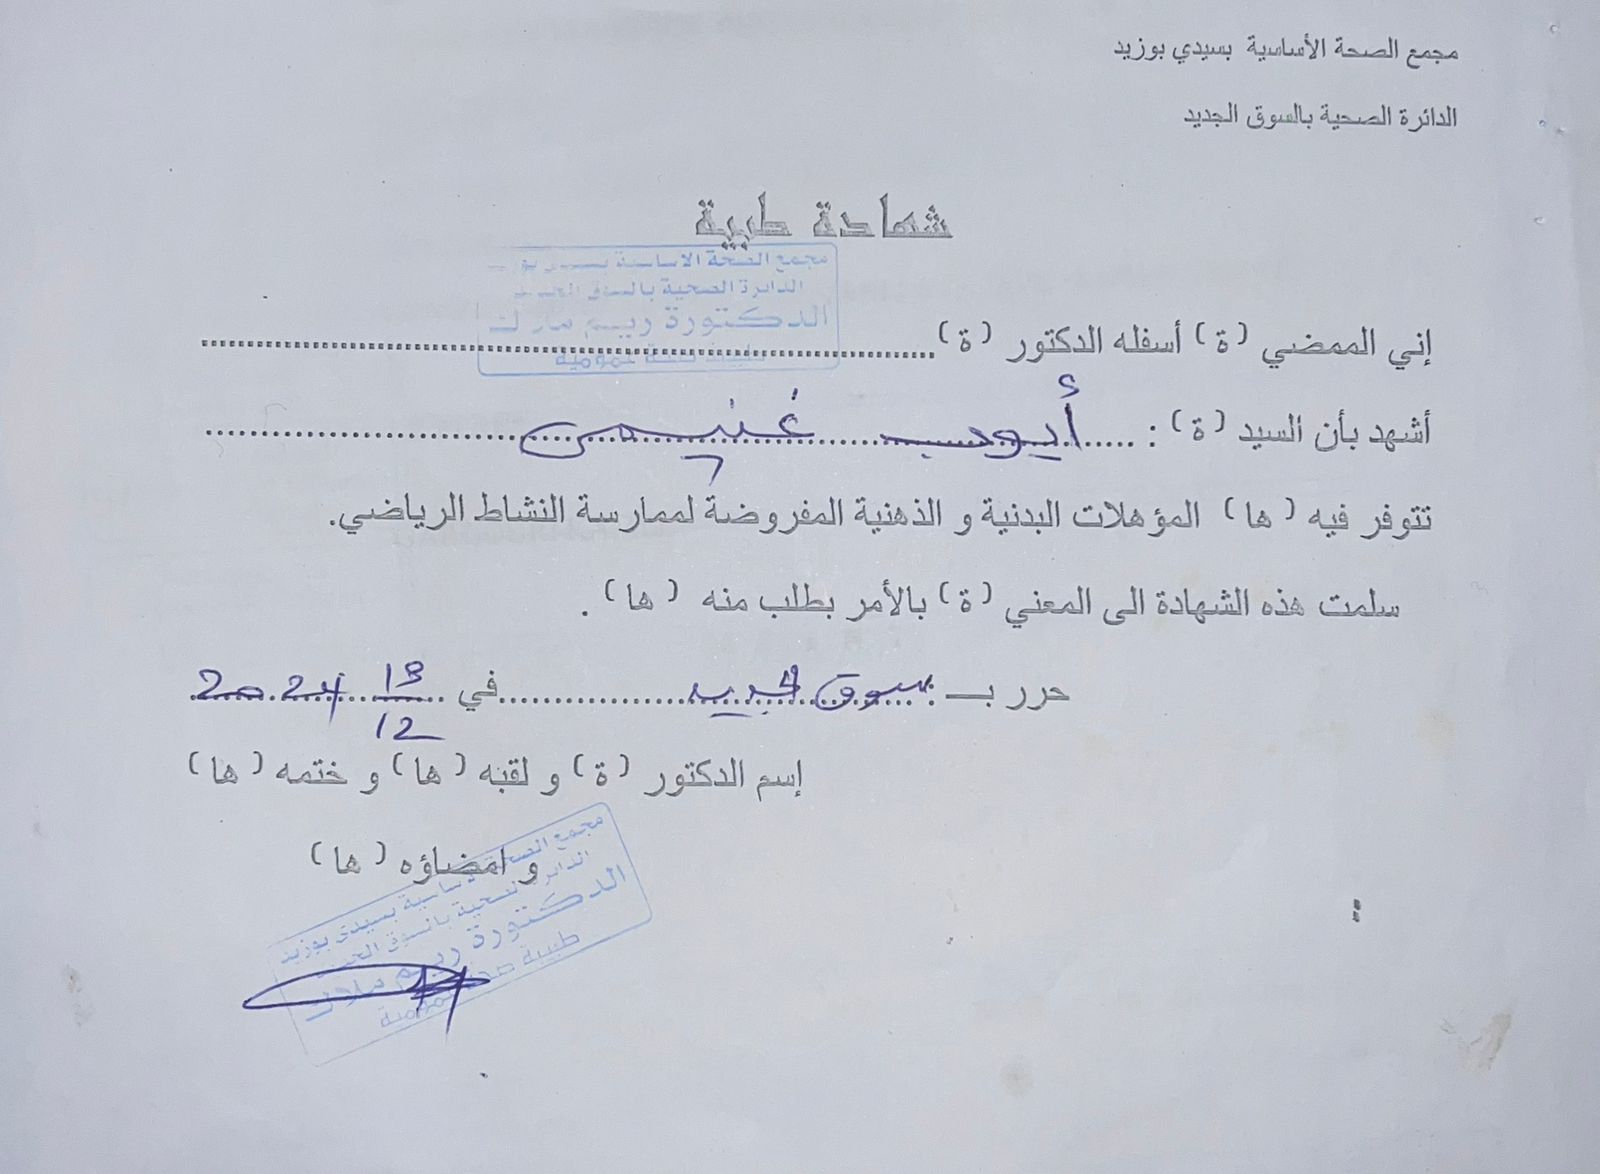 مجمع الصحة الأساسية بسيدي بوزيد
الدائرة الصحية بالسوق الجديد
شهادة طبية
مجمع الصحة الاساسية بسيدي
الدائرة الصحية بالسوق الجديد
الدكتورة ريم
طبيبة صحة عمومية
إني الممضي (ة) أسفله الدكتور (ة)
أشهد بأن السيد (ة) : أيوب غنيمي
تتوفر فيه (ها) المؤهلات البدنية و الذهنية المفروضة لممارسة النشاط الرياضي.
سلمت هذه الشهادة الى المعني (ة) بالأمر بطلب منه (ها) .
حرر بـ سوق الجديد في 13/12/2024
إسم الدكتور (ة) و لقبه (ها) و ختمه (ها)
و امضاؤه (ها)
مجمع الصحة الاساسية بسيدي بوزيد
الدائرة الصحية بالسوق الجديد
الدكتورة ريم
طبيبة صحة عمومية